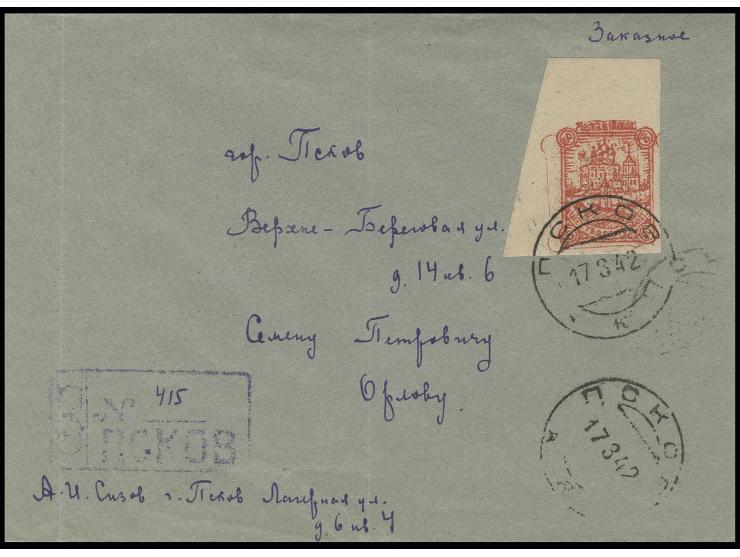 Заказное
гор. Псков
Верхне-Береговая ул.
д. 14 кв. 6
Семену Петровичу
Орлову.
ПСКОВ
17 3 42
ПСКОВ
17 3 42
№ 415
ПСКОВ
А. И. Сизов г. Псков Лагерная ул.
д. 6 кв. 4